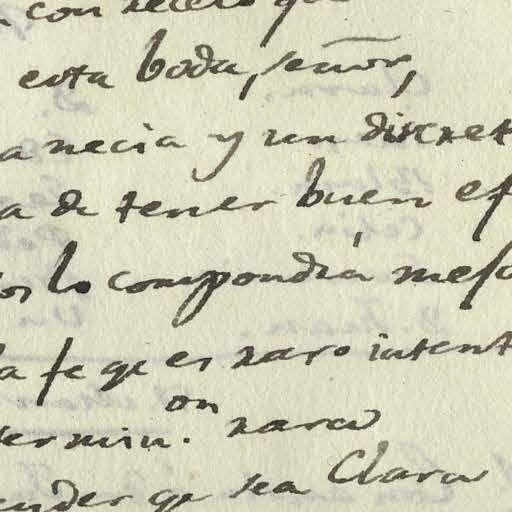 con recelo que
esta boda, señor,
a necia y un discret
a de tener buen ef
os lo compondrá mejo
a fe qe es raro intent
ermin.on rara
ender qe sea Clara